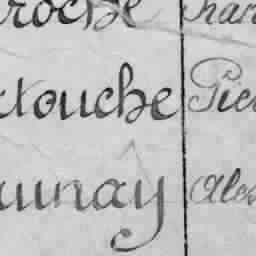 roche
touche Pier
unay Alex